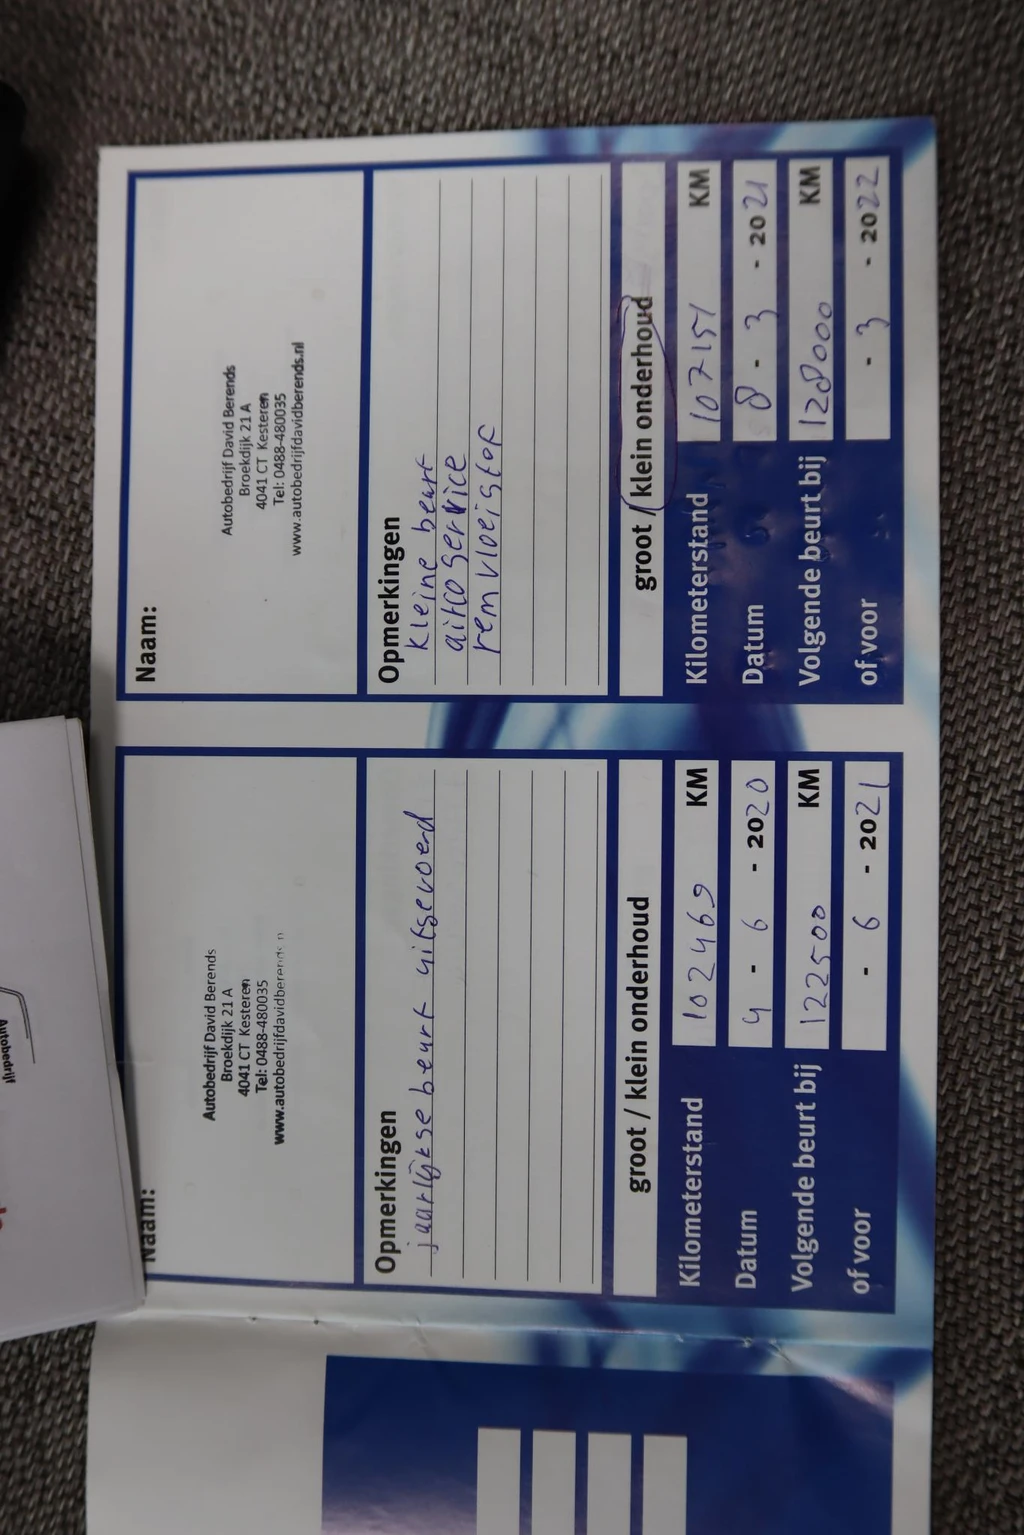 Naam:
Autobedrijf David Berends
Broekdijk 21 A
4041 CT Kesteren
Tel: 0488-480035
www.autobedrijfdavidberends.n
Opmerkingen
jaarlijkse beurt uitgevoerd
groot / klein onderhoud
Kilometerstand 102469 KM
Datum 4 - 6 - 2020
Volgende beurt bij 122500 KM
of voor - 6 - 2021
Naam:
Autobedrijf David Berends
Broekdijk 21 A
4041 CT Kesteren
Tel: 0488-480035
www.autobedrijfdavidberends.nl
Opmerkingen
kleine beurt
airco service
remvloeistof
groot / klein onderhoud
Kilometerstand 107151 KM
Datum 8 - 3 - 2021
Volgende beurt bij 128000 KM
of voor - 3 - 2022
Autobedrijf